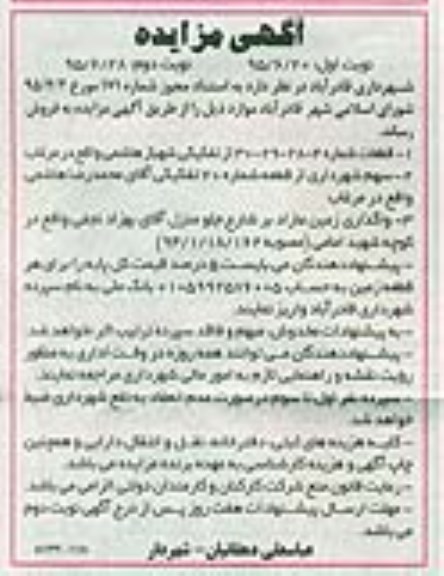 آگهی مزایده
نوبت اول: ۹۵/۶/۲۰ نوبت دوم: ۹۵/۶/۲۸
شهرداری قادرآباد در نظر دارد به استناد مجوز شماره ۱۷۱ مورخ ۹۵/۳/۳
شورای اسلامی شهر قادرآباد موارد ذیل را از طریق آگهی مزایده به فروش
رساند.
۱- قطعات شماره ۳-۲۸-۲۹-۳۰ از تفکیکی شهباز هاشمی واقع در مرغاب
۲- سهم شهرداری از قطعه شماره ۲۰ تفکیکی آقای محمدرضا هاشمی
واقع در مرغاب
۳- واگذاری زمین مازاد بر شارع جلو منزل آقای بهزاد نجفی واقع در
کوچه شهید امامی (مصوبه
- پیشنهاددهندگان می بایست ۵ درصد قیمت کل پایه را برای هر
قطعه زمین به حساب بانک ملی به نام سپرده
شهرداری قادرآباد واریز نمایند.
- به پیشنهادات مخدوش، مبهم و فاقد سپرده ترتیب اثر نخواهد شد.
- پیشنهاددهندگان می توانند همه روزه در وقت اداری به منظور
رویت نقشه و راهنمایی لازم به امور مالی شهرداری مراجعه نمایند.
- سپرده نفر اول تا سوم در صورت عدم انعقاد به نفع شهرداری ضبط
خواهد شد.
- کلیه هزینه های دفترخانه، نقل و انتقال دارایی و همچنین
چاپ آگهی و هزینه کارشناسی به عهده برنده مزایده می باشد.
- رعایت قانون منع شرکت کارکنان و کارمندان دولتی الزامی می باشد.
- مهلت ارسال پیشنهادات هفت روز پس از درج آگهی نوبت دوم
می باشد.
عباسعلی دهقانیان - شهردار